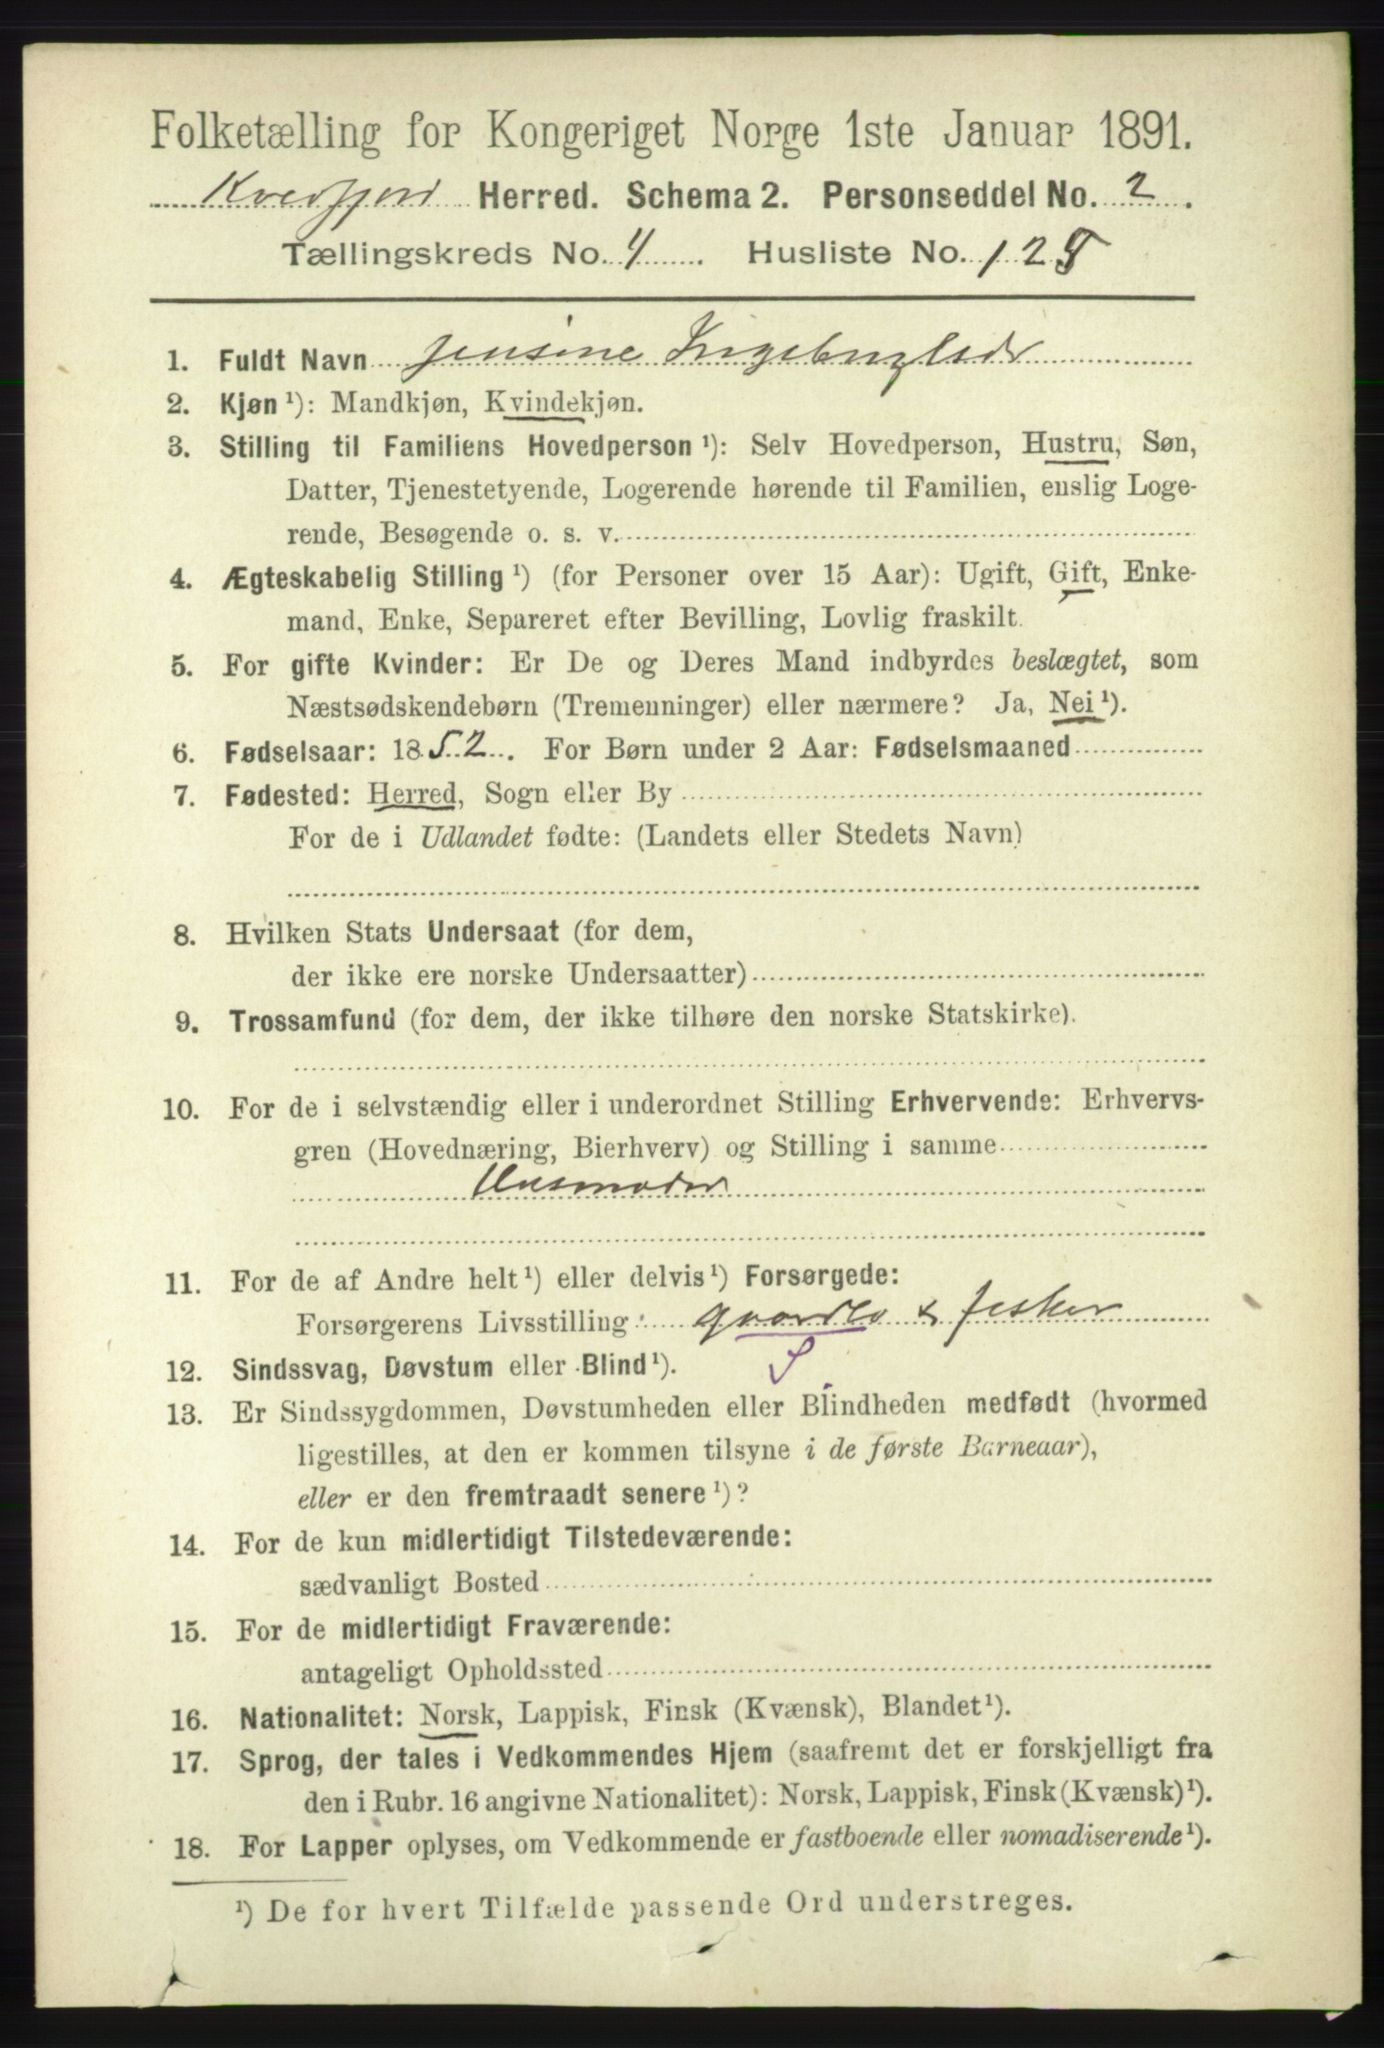 Folketælling for Kongeriget Norge 1ste Januar 1891.
Kvedfjord Herred. Schema 2. Personseddel No. 2.
Tællingskreds No. 4 Husliste No. 128
1. Fuldt Navn Jensine Ingebrigtsdr
2. Kjøn ¹): Mandkjøn, Kvindekjøn.
3. Stilling til Familiens Hovedperson ¹): Selv Hovedperson, Hustru, Søn,
Datter, Tjenestetyende, Logerende hørende til Familien, enslig Loge-
rende, Besøgende o. s. v.
4. Ægteskabelig Stilling ¹) (for Personer over 15 Aar): Ugift, Gift, Enke-
mand, Enke, Separeret efter Bevilling, Lovlig fraskilt.
5. For gifte Kvinder: Er De og Deres Mand indbyrdes beslægtet, som
Næstsødskendebørn (Tremenninger) eller nærmere? Ja, Nei ¹).
6. Fødselsaar: 1852. For Børn under 2 Aar: Fødselsmaaned
7. Fødested: Herred, Sogn eller By
For de i Udlandet fødte: (Landets eller Stedets Navn)
8. Hvilken Stats Undersaat (for dem,
der ikke ere norske Undersaatter)
9. Trossamfund (for dem, der ikke tilhøre den norske Statskirke).
10. For de i selvstændig eller i underordnet Stilling Erhvervende: Erhvervs-
gren (Hovednæring, Bierhverv) og Stilling i samme
Husmoder
11. For de af Andre helt ¹) eller delvis ¹) Forsørgede:
Forsørgerens Livsstilling: gaardbr & fisker
S
12. Sindssvag, Døvstum eller Blind ¹).
13. Er Sindssygdommen, Døvstumheden eller Blindheden medfødt (hvormed
ligestilles, at den er kommen tilsyne i de første Barneaar),
eller er den fremtraadt senere ¹)?
14. For de kun midlertidigt Tilstedeværende:
sædvanligt Bosted
15. For de midlertidigt Fraværende:
antageligt Opholdssted
16. Nationalitet: Norsk, Lappisk, Finsk (Kvænsk), Blandet ¹).
17. Sprog, der tales i Vedkommendes Hjem (saafremt det er forskjelligt fra
den i Rubr. 16 angivne Nationalitet): Norsk, Lappisk, Finsk (Kvænsk) ¹).
18. For Lapper oplyses, om Vedkommende er fastboende eller nomadiserende ¹).
¹) De for hvert Tilfælde passende Ord understreges.